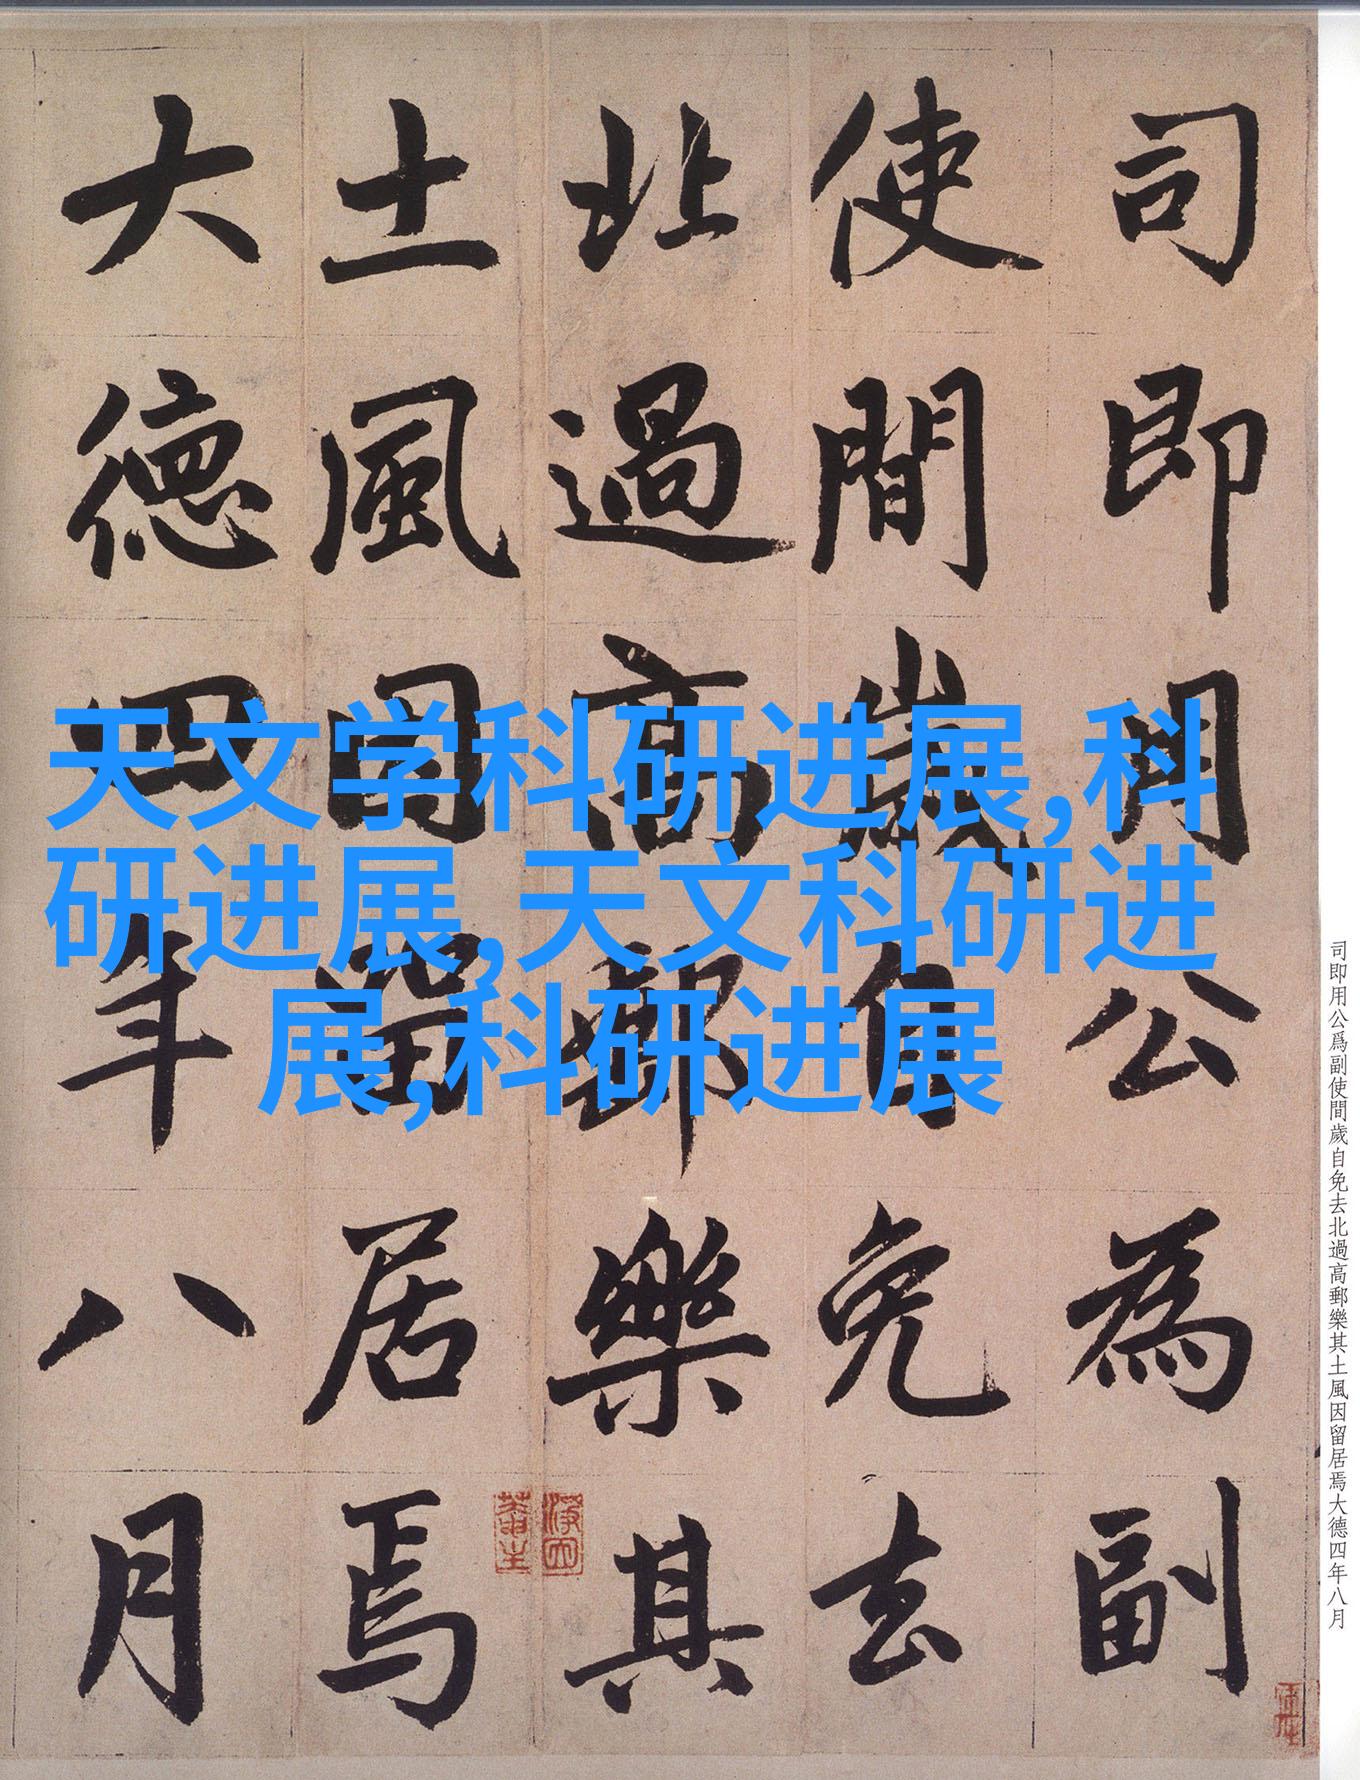 司即用公為副
使間歲自免去
北過高郵樂其
土風因留居焉
大德四年八月
天文学科研进展,科
研进展,天文科研进
展,科研进展
司即用公爲副使間歲自免去北過高郵樂其土風因留居焉大德四年八月